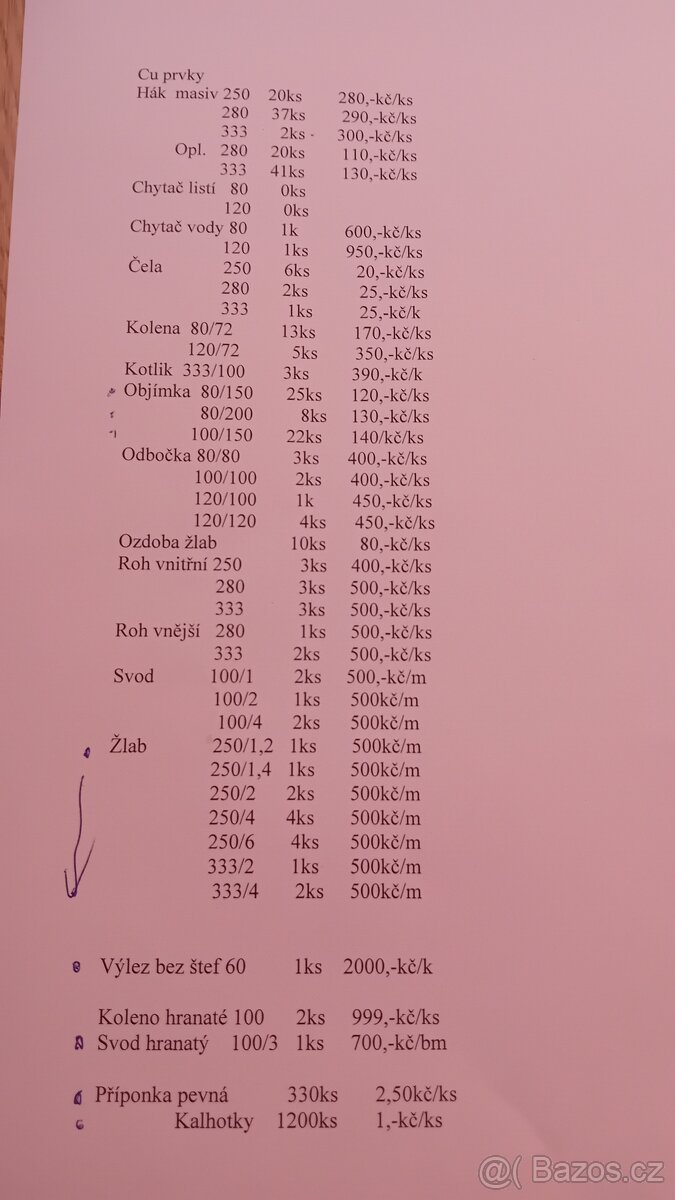 Cu prvky
Hák masiv 250 20ks 280,-kč/ks
280 37ks 290,-kč/ks
333 2ks 300,-kč/ks
Opl. 280 20ks 110,-kč/ks
333 41ks 130,-kč/ks
Chytač listí 80 0ks
120 0ks
Chytač vody 80 1k 600,-kč/ks
120 1ks 950,-kč/ks
Čela 250 6ks 20,-kč/ks
280 2ks 25,-kč/ks
333 1ks 25,-kč/k
Kolena 80/72 13ks 170,-kč/ks
120/72 5ks 350,-kč/ks
Kotlik 333/100 3ks 390,-kč/k
Objímka 80/150 25ks 120,-kč/ks
80/200 8ks 130,-kč/ks
100/150 22ks 140/kč/ks
Odbočka 80/80 3ks 400,-kč/ks
100/100 2ks 400,-kč/ks
120/100 1k 450,-kč/ks
120/120 4ks 450,-kč/ks
Ozdoba žlab 10ks 80,-kč/ks
Roh vnitřní 250 3ks 400,-kč/ks
280 3ks 500,-kč/ks
333 3ks 500,-kč/ks
Roh vnější 280 1ks 500,-kč/ks
333 2ks 500,-kč/ks
Svod 100/1 2ks 500,-kč/m
100/2 1ks 500kč/m
100/4 2ks 500kč/m
Žlab 250/1,2 1ks 500kč/m
250/1,4 1ks 500kč/m
250/2 2ks 500kč/m
250/4 4ks 500kč/m
250/6 4ks 500kč/m
333/2 1ks 500kč/m
333/4 2ks 500kč/m
Výlez bez štef 60 1ks 2000,-kč/k
Koleno hranaté 100 2ks 999,-kč/ks
Svod hranatý 100/3 1ks 700,-kč/bm
Příponka pevná 330ks 2,50kč/ks
Kalhotky 1200ks 1,-kč/ks
@( Bazos.cz